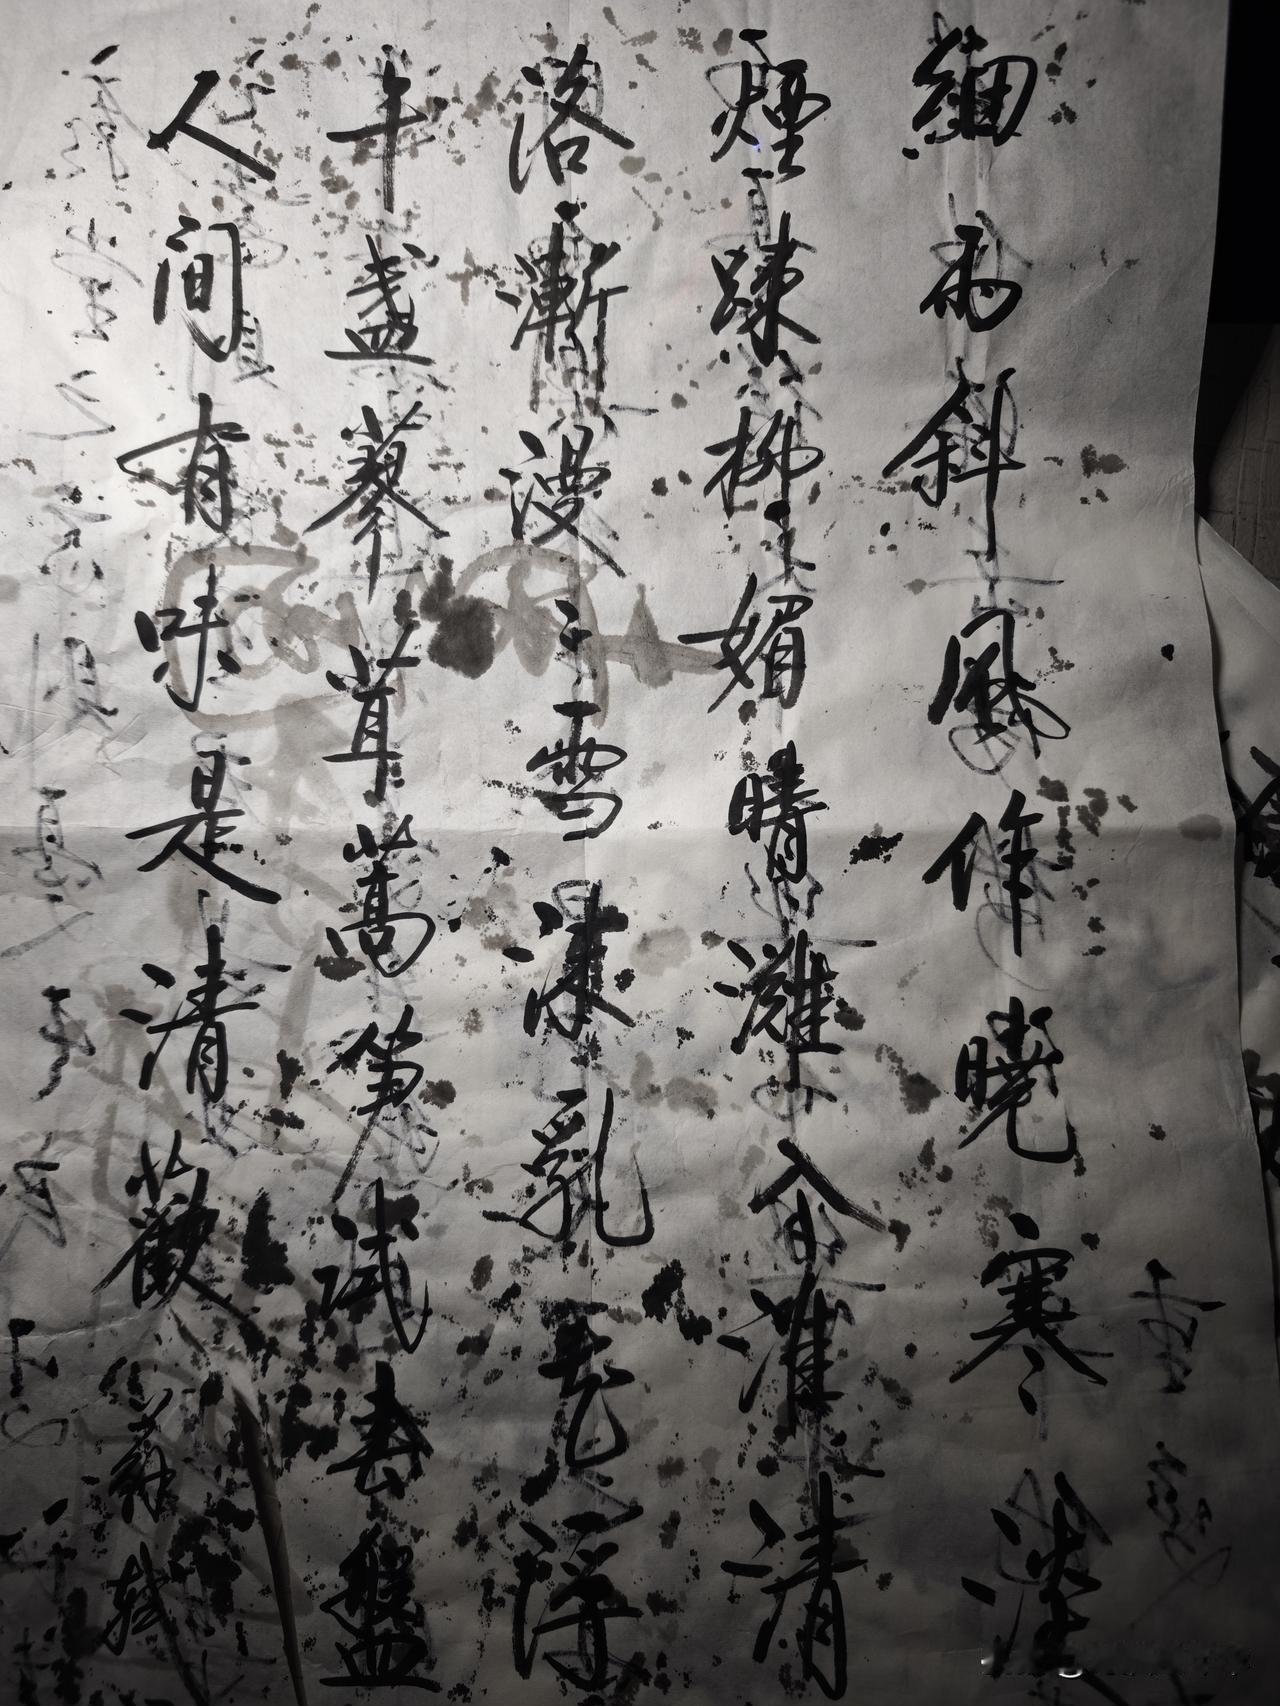 細雨斜風作曉寒淡
煙踈柳媚晴灘入淮清
洛漸漫〻雪沫乳花浮
午盞蓼茸蒿笋试春盤
人间有味是清歡 蘇軾